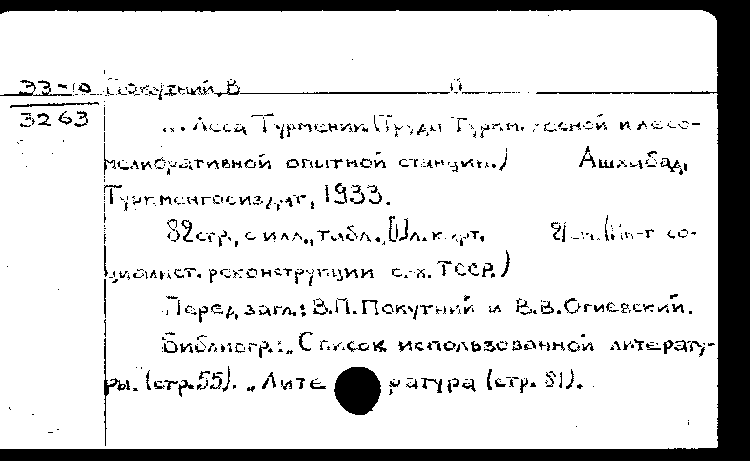 33-10 Покутний, В П
3263
... Леса Туркмении (Труды Туркм. лесной и лесо-
мелиоративной опытной станции.) Ашхабад,
Туркменгосиздат, 1933.
82 стр., с илл., табл., [1] л. карт. 21 см. (Ин-т со-
циалист. реконструкции с.-х. ТССР.)
Перед загл.: В.П.Покутний и В.В.Огиевский.
Библиогр.: „Список использованной литерату-
ры. (стр.55). „Литература (стр. 81).